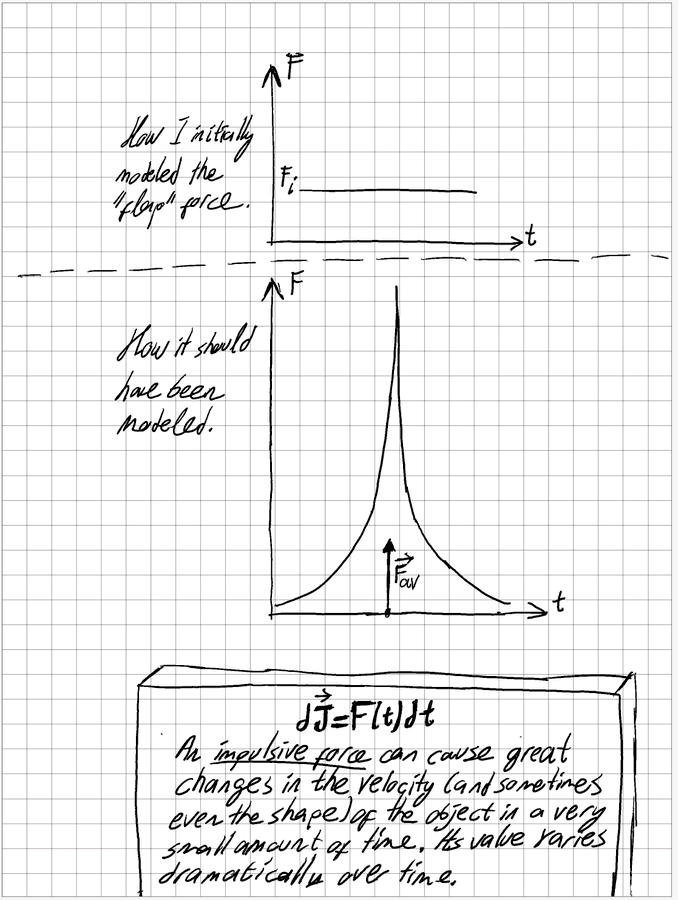 F
How I initially
modeled the
"flap" force.
Fi
t
F
How it should
have been
modeled.
Fav
t
dJ=F(t)dt
An impulsive force can cause great
changes in the velocity (and sometimes
even the shape) of the object in a very
small amount of time. Its value varies
dramatically over time.